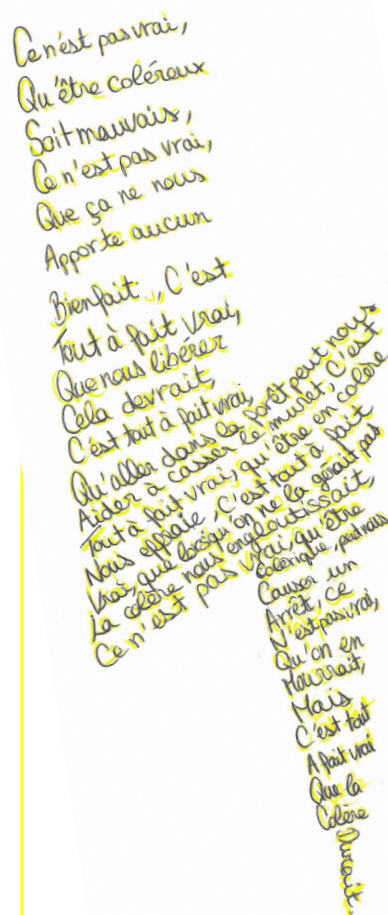 Ce n'est pas vrai,
Qu'être coléreux
Soit mauvais,
Ce n'est pas vrai,
Que ça ne nous
Apporte aucun
Bienfait, C'est
Tout à fait vrai,
Que nous libérer
Cela devrait,
C'est tout à fait vrai
Qu'aller dans la forêt peut nous
Aider à casser le muret, C'est
Tout à fait vrai, qu'être en colère
Nous effraie, C'est tout à fait
Vrai, que lorsqu'on ne la gérait pas
La colère nous engloutissait,
Ce n'est pas vrai, qu'être
Colérique, peut nous
Causer un
Arrêt, ce
N'est pas vrai,
Qu'on en
Mourrait,
Mais
C'est tout
A fait vrai
Que la
Colère